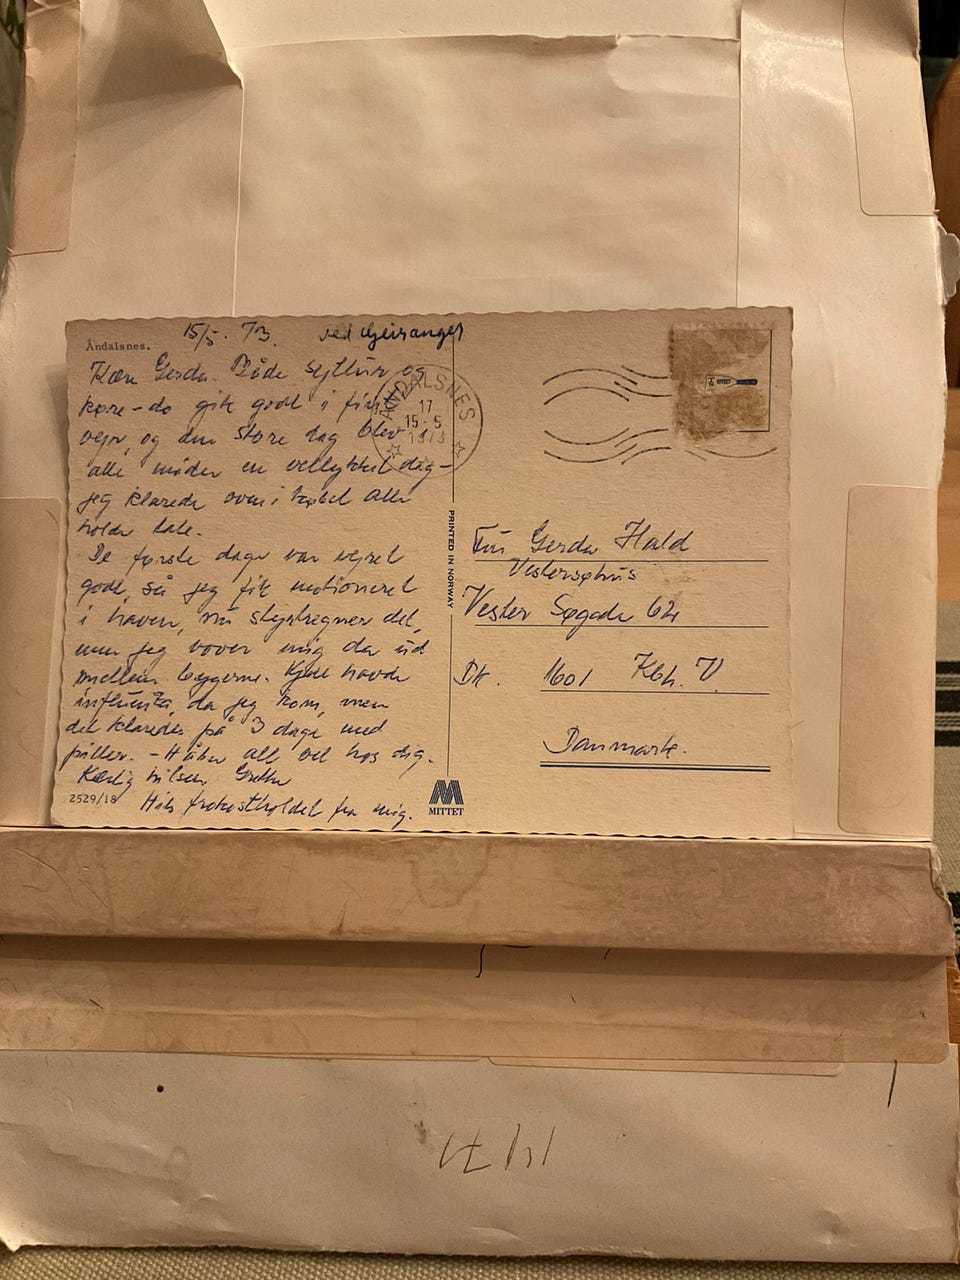 Åndalsnes.
15/5. 73. ved Geiranger
Kære Gerda. Både sejltur og
køre-do gik godt i fint
vejr, og den store dag blev i
alle måder en vellykket dag -
jeg klarede oven i købet alle
holde tale.
De første dage var vejret
godt, så jeg fik motioneret
i haven, nu støvregner det,
men jeg vover mig da ud
mellem bygerne. Kjell havde
influenza, da jeg kom, men
det klaredes på 3 dage med
piller. - Håber alt vel hos dig.
Kærlig hilsen Grethe
Hils frokostholdet fra mig.
2529/18
ÅNDALSNES
17
15-5
1973
PRINTED IN NORWAY
MITTET
Fru Gerda Hald
Vestersøhus
Vester Søgade 64
Dk. 1601 Kbh. V
Danmark.